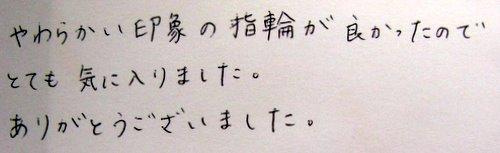 やわらかい印象の指輪が良かったので
とても気に入りました。
ありがとうございました。